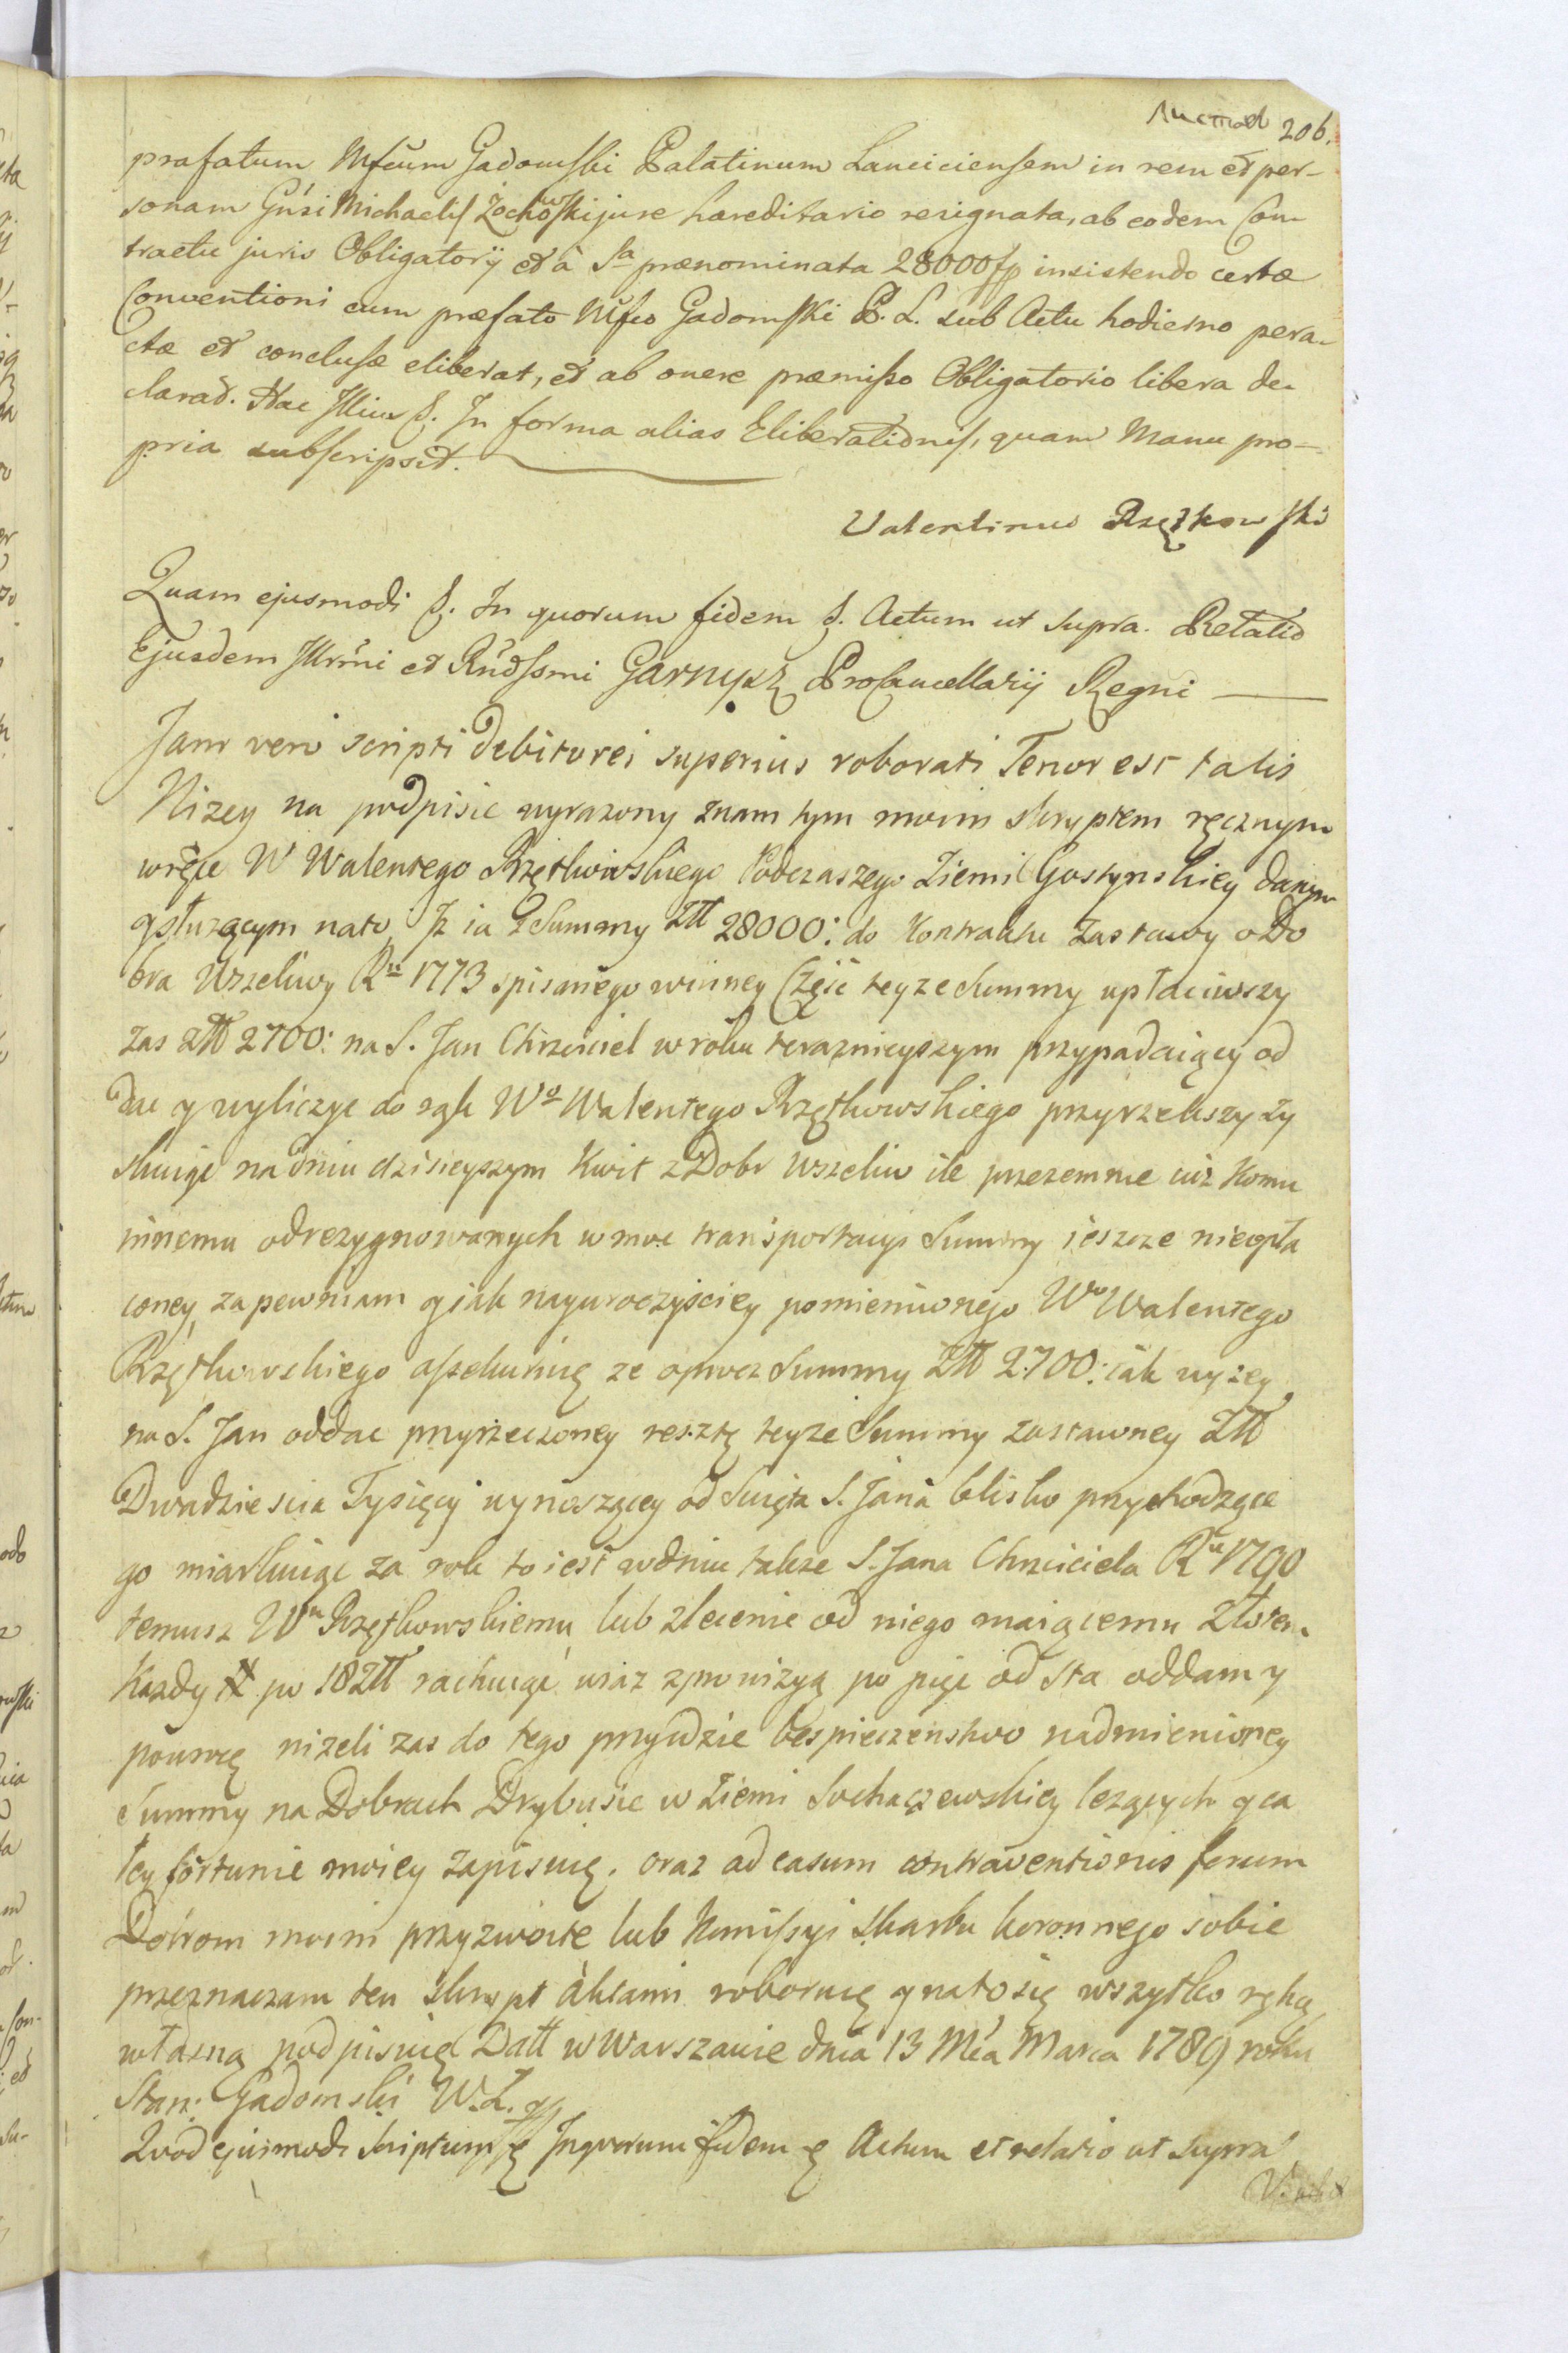 206.
præfatum Mfcum Gadomski Palatinum Lanciciensem in rem et per-
sonam Gnsi Michaelis Zochowski jure hæreditario resignata, ab eodem Con
tractu juris Obligatorij et à Sa prænominata 28000 fp insistendo certæ
Conventioni cum præfato Mfco Gadomski P. L. sub Actu hodierno pera-
ctæ et conclusæ eliberat, et ab onere præmisso Obligatorio libera de-
clarat. Hac Illius &. In forma alias Eliberationis, quam Manu pro-
pria subscripsit.
Valentinus Rzętkowski
Quam ejusmodi &. In quorum fidem &. Actum ut supra. Relatio
Ejusdem Illrmi et Rndssmi Garnysz Procancellarij Regni
Jam vero scripti debitorei superius roborati Tenor est talis
Nizey na podpisie wyrazony znam tym moim skryptem ręcznym
wręce W Walentego Rzętkowskiego Podczaszego Ziemi Gostynskiey danym
y słuzącym nato, Jz ia z Summy Złł 28000: do Kontraktu Zastawy o Do
bra Wszeliwy Ru 1773 spisanego winney Część teyze Summy upłaciwszy
zas złł 2700: na S. Jan Chrzciciel w roku terazniejszym przypadaiący od
dac y wyliczyc do rąk Wo Walentego Rzętkowskiego przyrzekszy zy
skuię na dniu dzisieyszym Kwit z Dobr Wszeliw ile przezemnie iuż komu
innemu odrezygnowanych w moc transportacyi Summy ieszcze nieopła
coney, zapewniam y iak nayuroczyściey pomienionego Wo Walentego
Rzętkowskiego assekuruię ze oprocz Summy Złł 2700: iak wyzey
na S. Jan oddac przyrzeczoney resztę teyze Summy zastawney Złł
Dwadziescia Tysięcy wynoszącey od Swięta S. Jana blisko przychodzące
go miarkuiąc za rok to iest w dniu także S. Jana Chrzciciela Ru 1790
temusz Wu Rzętkowskiemu lub zlecenie od niego maiącemu złotem
Kazdy # po 18 Złł rachuiąc wraz z prowizyą po pięc od Sta oddam y
powrocę nizeli zas do tego przyidzie bespieczenstwo nadmienioney
Summy na Dobrach Drybusie w Ziemi Sochaczewskiey lezących y ca
łey fortunie moiey zapisuię. oraz ad casum contraventionis forum
Dobrom moim przyzwoite lub Komissyi Skarbu koronnego sobie
przeznaczam ten skrypt aktami roboruię y nato się wszytko ręką
własną podpisuię Datt w Warszawie dnia 13 Mca Marca 1789 roku
Stan: Gadomski W. Ł.
Quod ejusmodi Scriptum & In quorum fidem & Actum et relatio ut supra